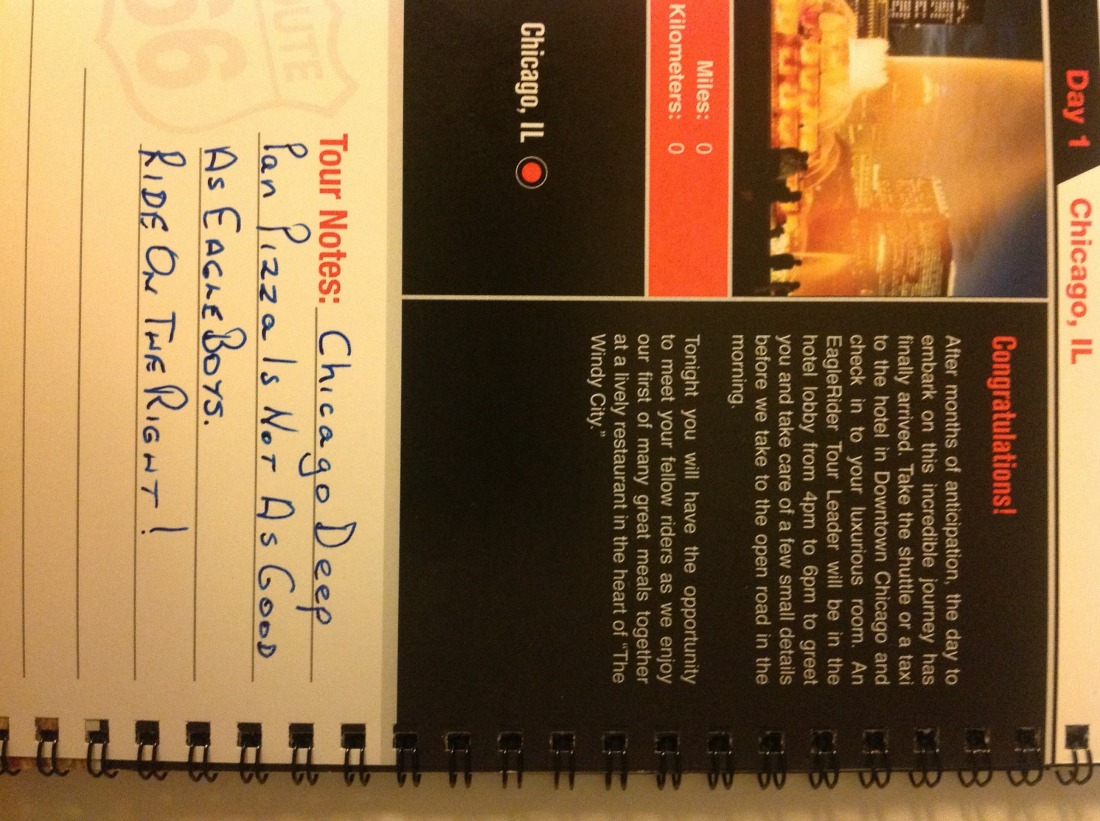 Day 1
Chicago, IL
Miles: 0
Kilometers: 0
Chicago, IL
Congratulations!
After months of anticipation, the day to
embark on this incredible journey has
finally arrived. Take the shuttle or a taxi
to the hotel in Downtown Chicago and
check in to your luxurious room. An
EagleRider Tour Leader will be in the
hotel lobby from 4pm to 6pm to greet
you and take care of a few small details
before we take to the open road in the
morning.
Tonight you will have the opportunity
to meet your fellow riders as we enjoy
our first of many great meals together
at a lively restaurant in the heart of "The
Windy City."
Tour Notes: Chicago Deep
Pan Pizza Is Not As Good
As EAGLE BOYS.
RIDE ON THE RIGHT!
ROUTE
66